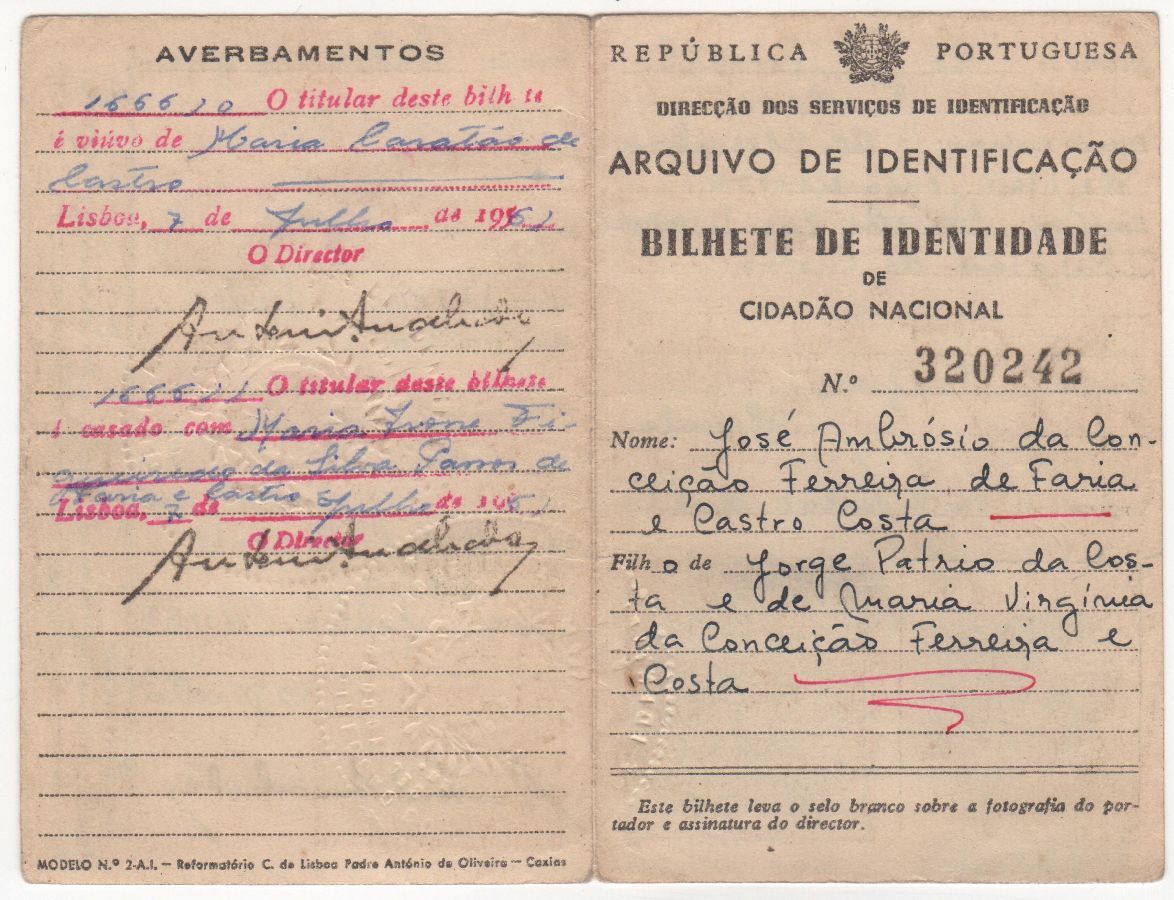 AVERBAMENTOS
O titular deste bilh te
é viúvo de Maria
Castro
Lisboa, 7 de Julho de 196
O Director
O titular deste bilhete
casado com Maria Ivone Fi-
gueiredo da Silva de
Faria e Castro
Lisboa, 7 de Julho de
O Director
MODELO N.º 2-A.I. — Reformatório C. de Lisboa Padre António de Oliveira — Caxias
REPÚBLICA PORTUGUESA
DIRECÇÃO DOS SERVIÇOS DE IDENTIFICAÇÃO
ARQUIVO DE IDENTIFICAÇÃO
BILHETE DE IDENTIDADE
DE
CIDADÃO NACIONAL
N.º 320242
Nome: José Ambrósio da Con-
ceição Ferreira de Faria
e Castro Costa
Filho de Jorge Patrio da Cos-
ta e de Maria Virgínia
da Conceição Ferreira e
Costa
Este bilhete leva o selo branco sobre a fotografia do por-
tador e assinatura do director.